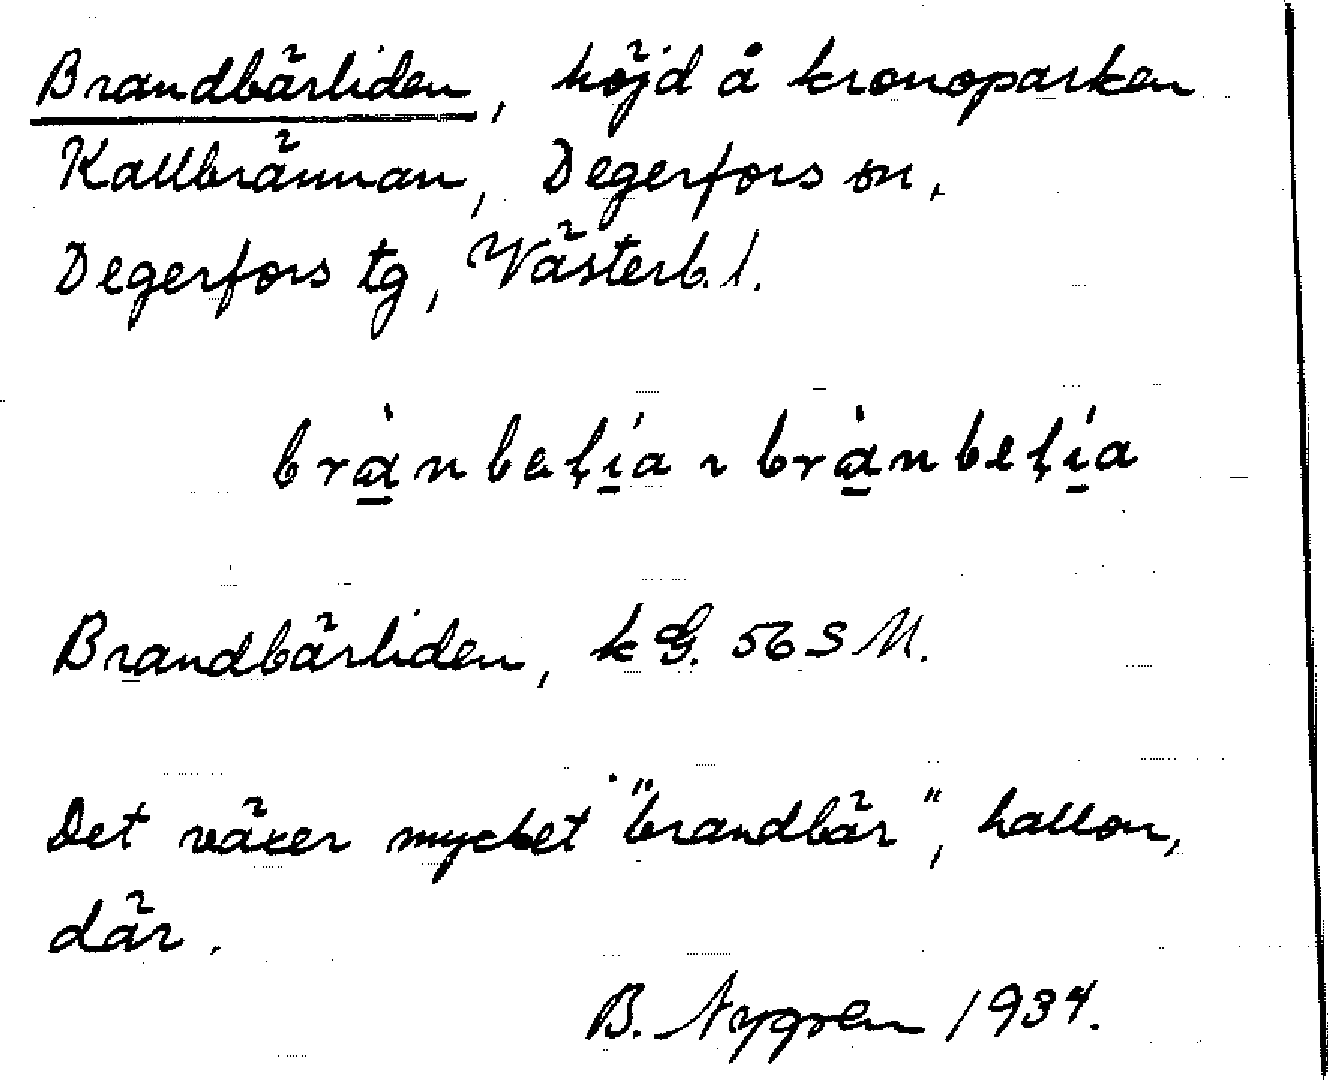 Brandbärliden, höjd å kronoparken
Kallbrännan, Degerfors sn,
Degerfors tg, Västerb. l.
brànbeḷía ~ brànbeḷía
Brandbärliden, kG. 56 S M.
Det växer mycket "brandbär", hallon,
där.
B. Nygren 1934.